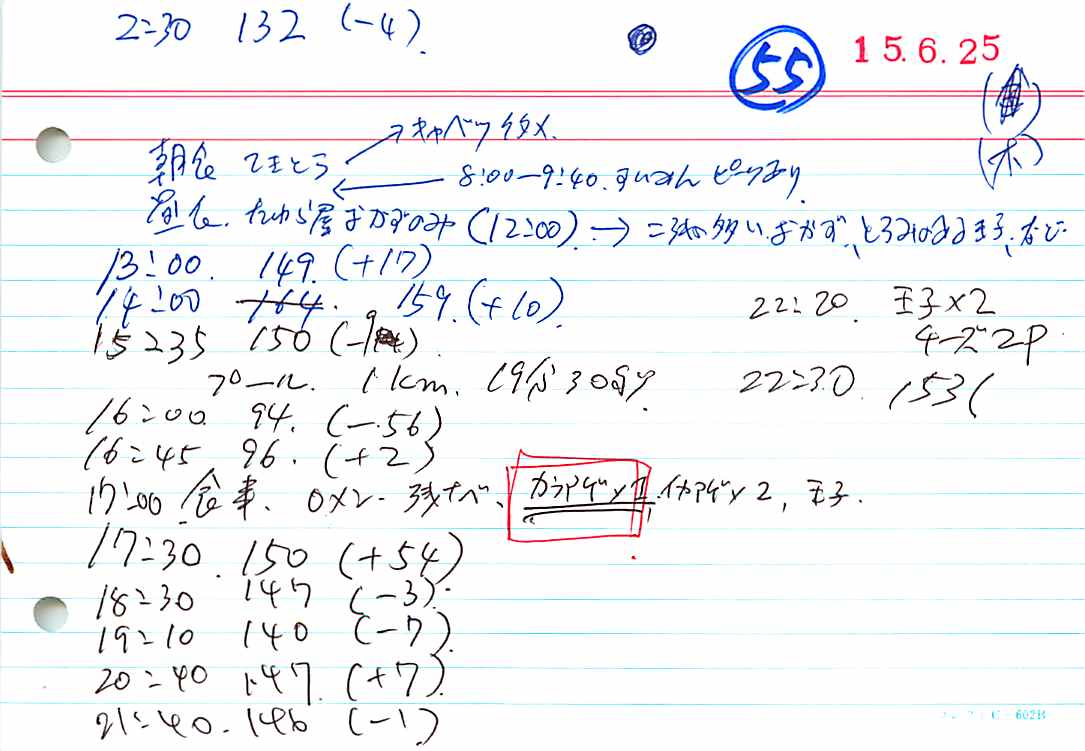 2:30 132 (-4).
55 15.6.25
(木)
→キャベツ
朝食
8:00-9:40. すいみん ピークあり
昼食. たわら屋おかずのみ (12:00). → 多い.おかず、 玉子、など
13:00. 149. (+17)
14:00 164. 159. (+10).
22:20. 玉子×2
チーズ2P
15:35 150 (-9).
プール. 1km. 19分30秒
22:30. 153(
16:00 94. (-56)
16:45 96. (+2)
17:00 食事. 残ナベ、カラアゲ×2.イカアゲ×2, 玉子.
17:30. 150 (+54)
18:30 147 (-3).
19:10 140 (-7).
20:40 147. (+7).
21:40. 146 (-1)
602B